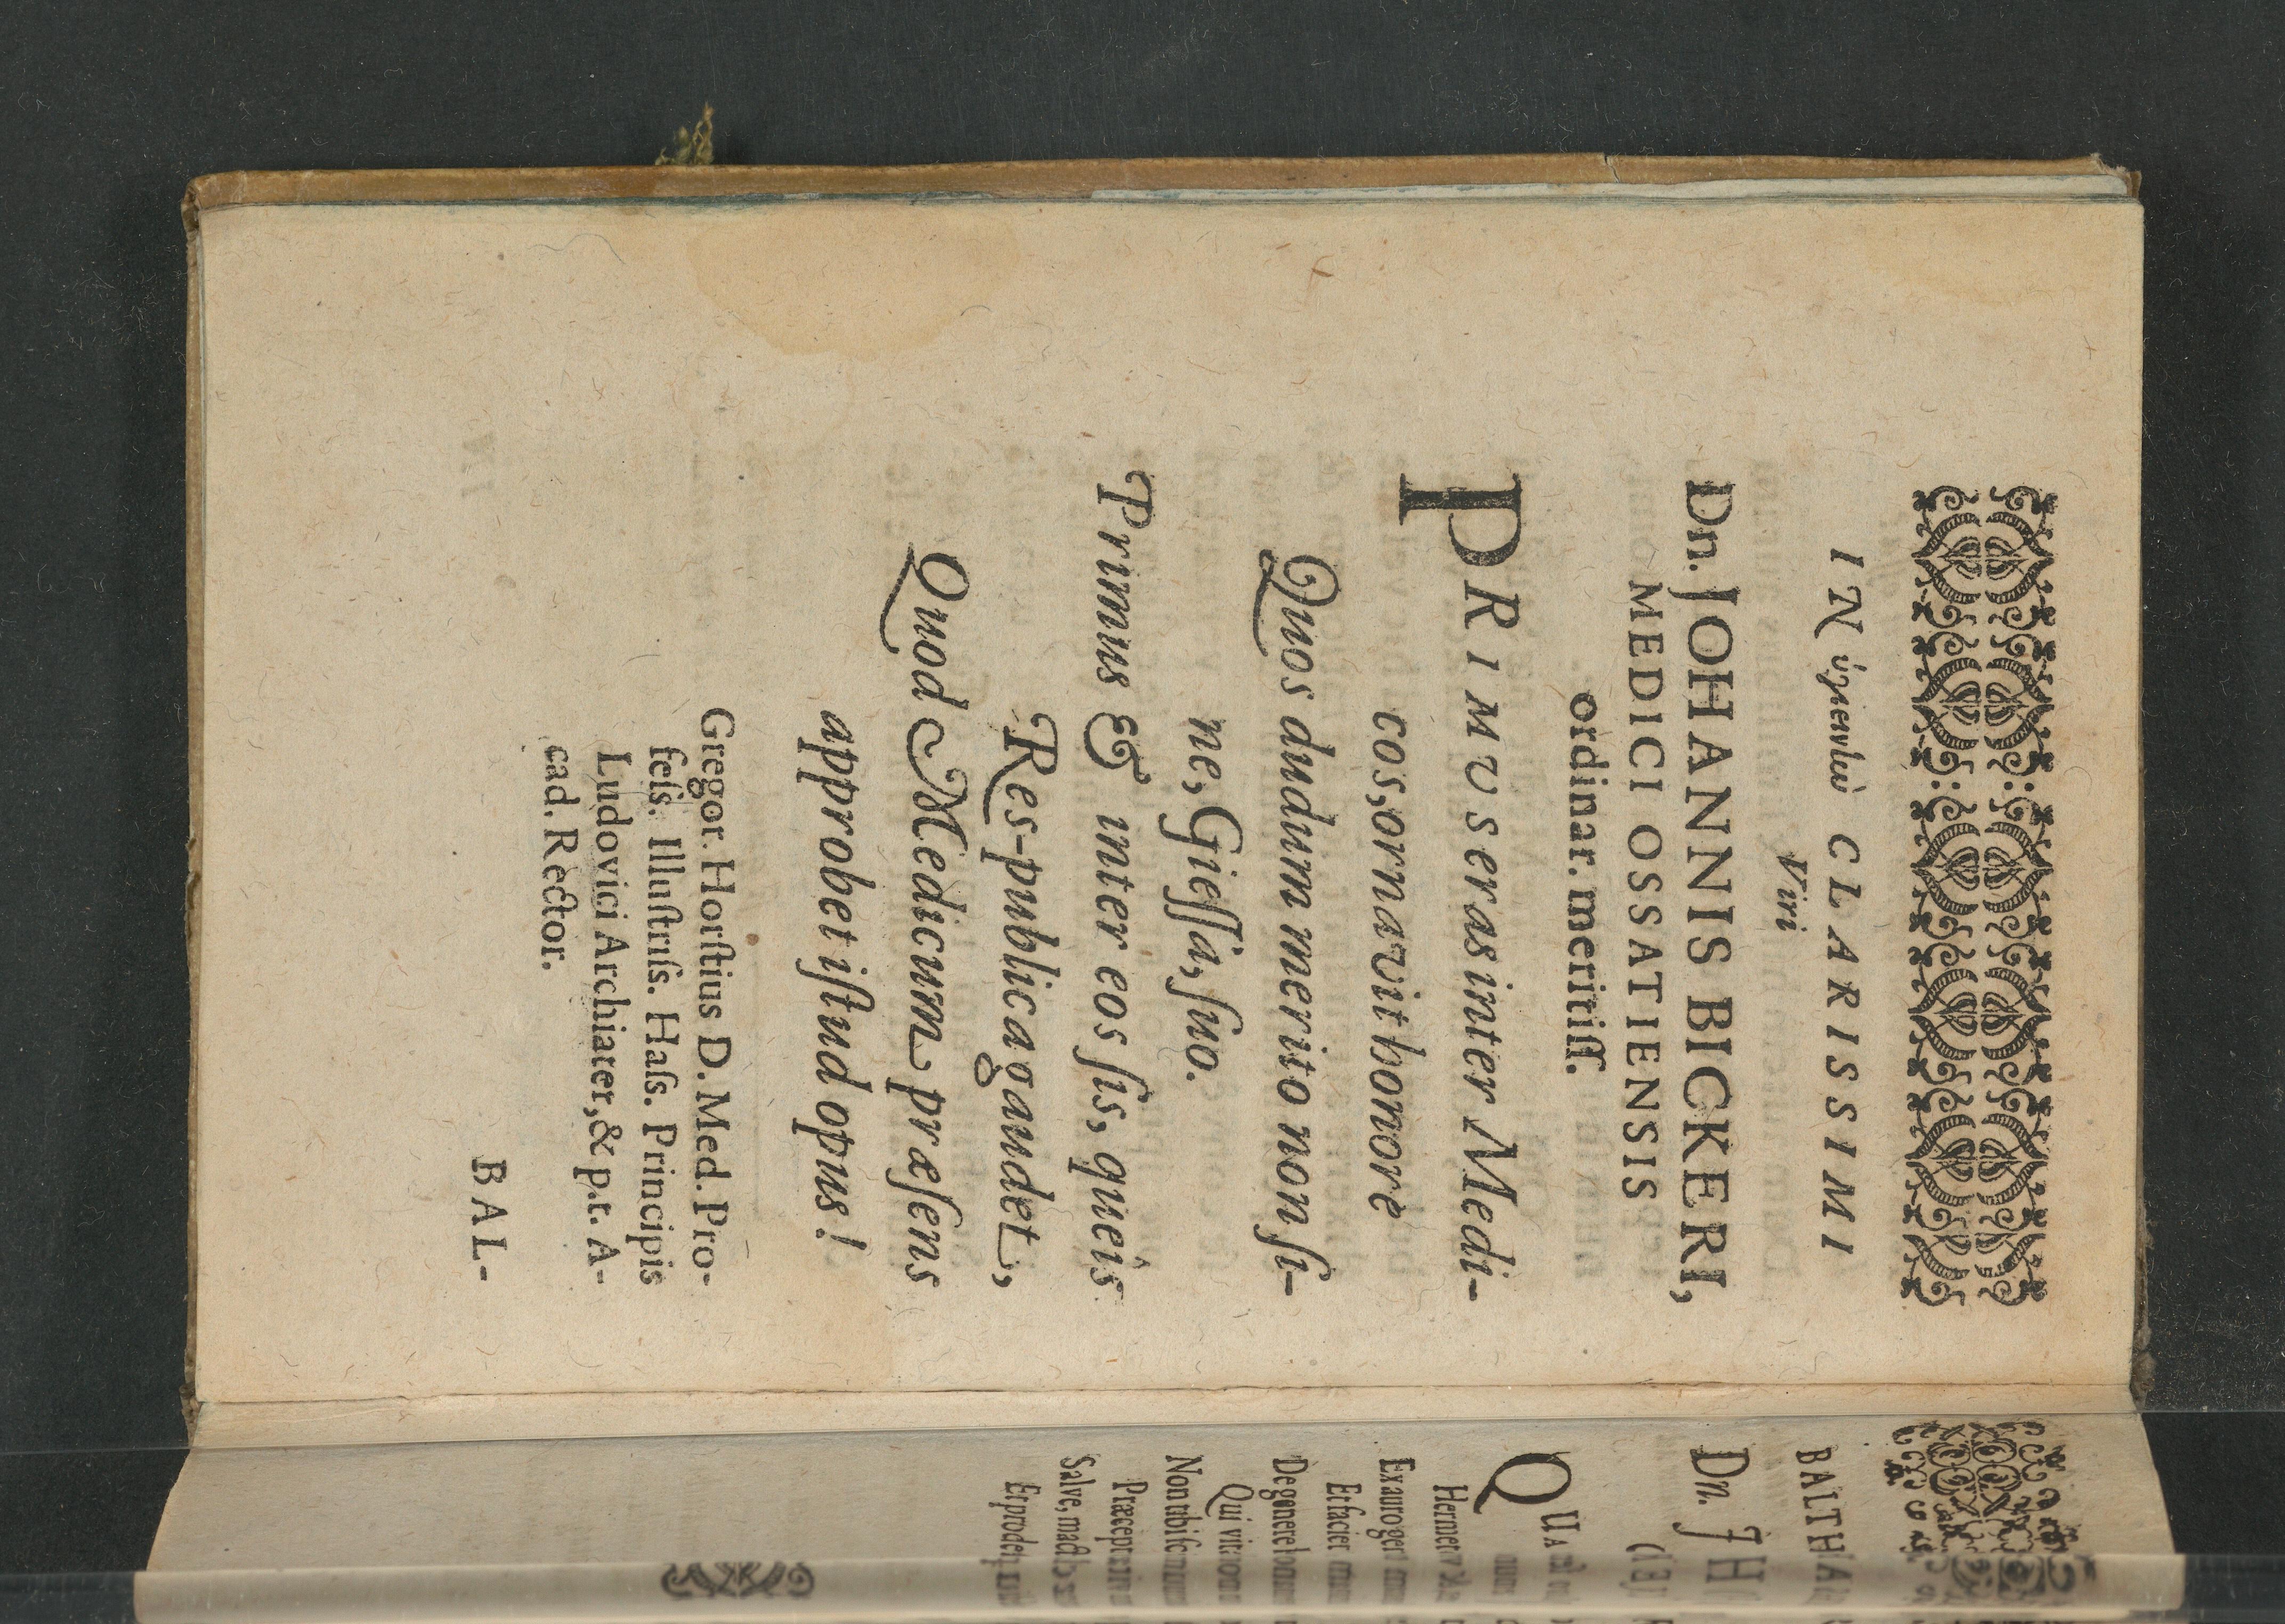 IN ὑγιεινὴν CLARISSIMI
Viri
Dn. JOHANNIS BICKERI,
MEDICI OSSATIENSIS
ordinar. meritiſſ.
PRIMUS eras inter Medi-
cos, ornavit honore
Quos dudum merito non ſi-
ne, Gieſſa, ſuo.
Primus & inter eos ſis, queîs
Res-publica gaudet,
Quod Medicum præſens
approbet iſtud opus!
Gregor. Horſtius D. Med. Pro-
feſs. Illuſtriſs. Haſs. Principis
Ludovici Archiater, & p.t. A-
cad. Rector.
BAL-
BALTHA
Dn. JH
QUA
Hermet
Ex auro
Et facie
De genere
Qui vi
Non ubi
Præcep
Salve, mact
Et prode